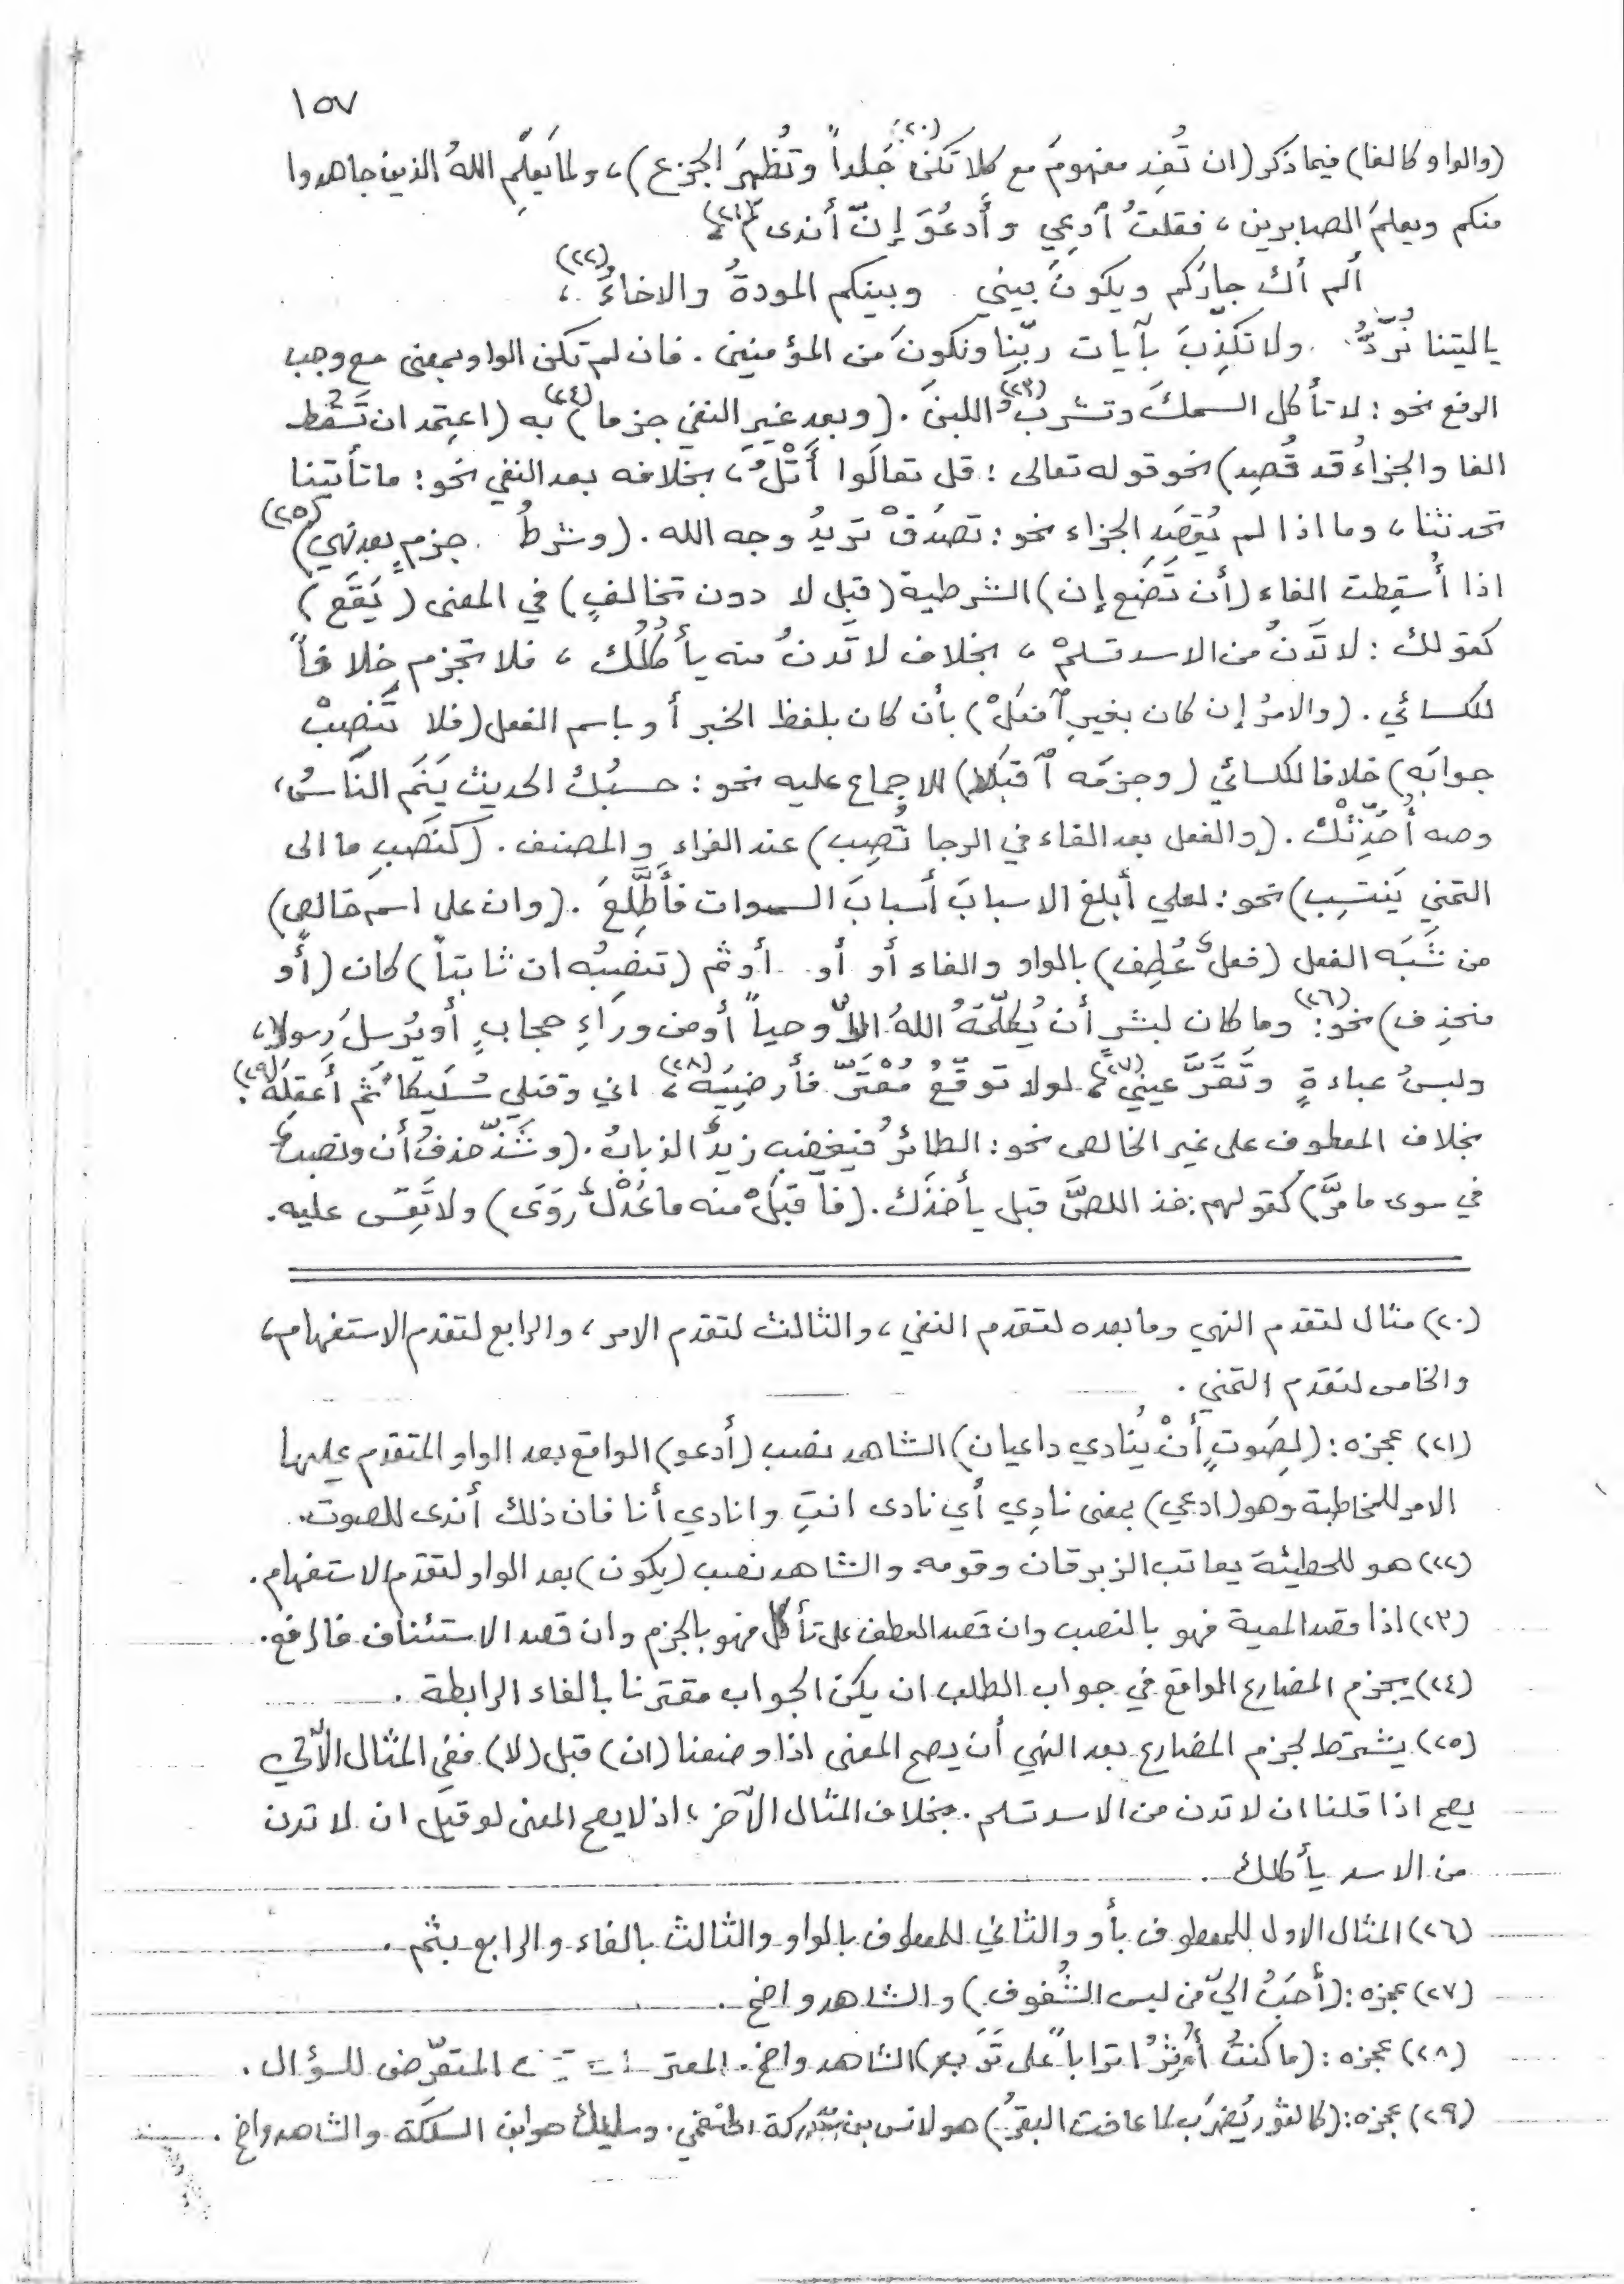 ١٥٧
(والواو كالفا) فيما ذكر (ان تُفِد مفهومَ مع كلا تكنْ (٢٠) جَلداً وتُظهِرَ الجزع)، ولما يَعلَمِ اللهُ الذين جاهدوا
منكم ويعلمَ الصابرين، فقلتُ ٱدعِي وأَدعُوَ إنّ أندى (٢١)،
ألم أك جارَكم ويكونَ بيني وبينكم المودةُ والاخاءُ (٢٢)،
يا ليتنا نُرَدُّ ولا نكذِّبَ بآيات ربِّنا ونكونَ من المؤمنين. فان لم تكن الواو بمعنى مع وجب
الرفع نحو: لا تأكل السمكَ وتشربُ (٢٣) اللبنَ. (وبعد غيرِ النفي جزما (٢٤) به (اعتمد ان تَسقُط
الفا والجزاءُ قد قُصِد) نحو قوله تعالى: قل تعالَوا أَتْلُ، بخلافه بعد النفي نحو: ما تأتينا
تحدثنا، وما اذا لم يُقصَدِ الجزاء نحو: تصدَقْ تريدُ وجه الله. (وشرطُ جزمٍ بعد نهيٍ) (٢٥)
اذا أُسقِطت الفاء (أن تَضَع إن) الشرطية (قبل لا دون تخالفٍ) في المعنى (يَقَع)
كقولك: لا تَدنُ من الاسد تسلمْ، بخلاف لا تَدنُ منه يأكلُك، فلا تجزم خلافاً
للكسائي. (والامرُ إن كان بغيرِ ٱفعَلْ) بأن كان بلفظ الخبر أو باسم الفعل (فلا تَنصِبْ
جوابَه) خلافا للكسائي (وجزمَه ٱقبَلا) للاجماع عليه نحو: حسبُك الحديث يَنَمِ النّاسُ،
وصه أُحَدِّثْكَ. (والفعل بعد الفاء في الرجا نُصِب) عند الفراء والمصنف. (كنَصبِ ما الى
التمني يَنتسِب) نحو: لعلي أبلغ الاسبابَ أسبابَ السموات فأَطَّلِعَ. (وان على اسم خالصٍ)
من شَبَه الفعل (فعلٌ عُطِف) بالواو والفاء أو أو أو ثم (تنصِبُه ان ثابتاً) كان (أو
منحذِف) نحو: (٢٦) وما كان لبشرٍ أن يُكلِّمَهُ اللهُ الاّ وحياً أو من وراءِ حجابٍ أو يُرسلَ رسولا،
ولبسُ عباءةٍ وتَقَرَّ عيني (٢٧)، لولا توقّعُ مُعْتَرٍّ فأرضِيَه (٢٨)، اني وقتلي سُليكا ثم أَعقِلَه (٢٩).
بخلاف المعطوف على غير الخالص نحو: الطائرُ فيغضبُ زيدٌ الذبابُ. (وشَذّ حذفُ أن ونصبٌ
في سوى ما مرَّ) كقولهم: خذ اللصَّ قبل يأخذَك. (فٱقبَلْ منه ما عَدْلٌ رَوَى) ولا تَقِس عليه.
(٢٠) مثال لتقدم النهي وما بعده لتقدم النفي، والثالث لتقدم الامر، والرابع لتقدم الاستفهام،
والخامس لتقدم التمني.
(٢١) عجزه: (لِصَوتٍ أنْ يُنادي داعيان) الشاهد نصب (أدعو) الواقع بعد الواو المتقدم عليها
الامر للمخاطبة وهو (ادعي) بمعنى نادِي أي نادى انتِ وانادي أنا فان ذلك أندى للصوت.
(٢٢) هو للحطيئة يعاتب الزبرقان وقومه. والشاهد نصب (يكون) بعد الواو لتقدم الاستفهام.
(٢٣) اذا قصد المعية فهو بالنصب وان قصد العطف على تأكل فهو بالجزم وان قصد الاستئناف فارفع.
(٢٤) يجزم المضارع الواقع في جواب الطلب ان يكن الجواب مقترنا بالفاء الرابطة.
(٢٥) يشترط لجزم المضارع بعد النهي أن يصح المعنى اذا وضعنا (ان) قبل (لا) ففي المثال الآتي
يصح اذا قلنا ان لا تدن من الاسد تسلم. بخلاف المثال الآخر؛ اذ لا يصح المعنى لو قيل ان لا تدن
من الاسد يأكلك.
(٢٦) المثال الاول للمعطوف بأو والثاني للمعطوف بالواو والثالث بالفاء والرابع بثم.
(٢٧) عجزه: (أحَبُ اليّ من لبس الشُفوف) والشاهد واضح.
(٢٨) عجزه: (ما كنتُ أُوثِرُ اترابا على تَرَب) الشاهد واضح. المعتر المتعرّض للسؤال.
(٢٩) عجزه: (كالثور يُضرَب لما عافت البقرُ) هو لانس بن مدركة الخثعمي. وسليك هو ابن السلكة والشاهد واضح.